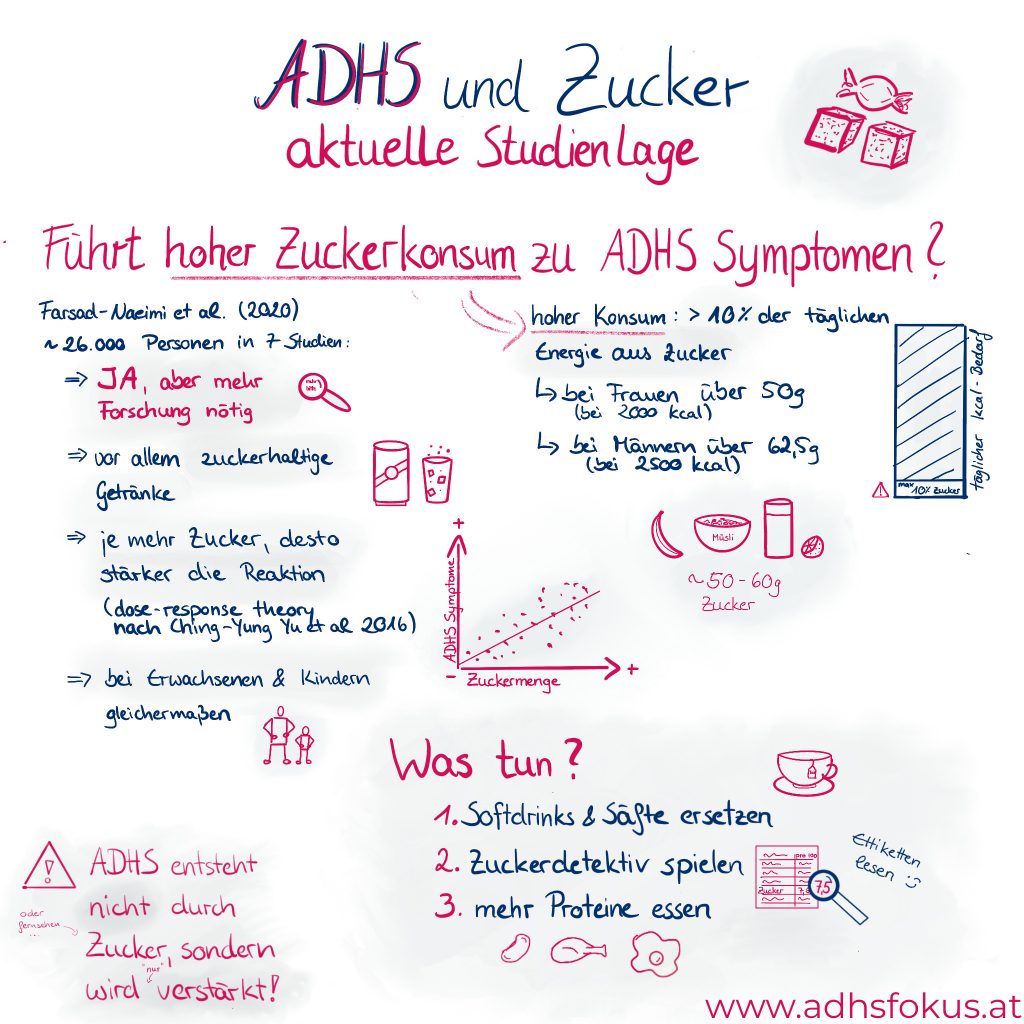 ADHS und Zucker
aktuelle Studienlage
Führt hoher Zuckerkonsum zu ADHS Symptomen?
Farsad-Naeimi et al. (2020)
~ 26.000 Personen in 7 Studien:
⇒ JA, aber mehr
Forschung nötig
⇒ vor allem zuckerhaltige
Getränke
⇒ je mehr Zucker, desto
stärker die Reaktion
(dose-response theory
nach Ching-Yung Yu et al 2016)
⇒ bei Erwachsenen & Kindern
gleichermaßen
hoher Konsum: > 10% der täglichen
Energie aus Zucker
↳ bei Frauen über 50g
(bei 2000 kcal)
↳ bei Männern über 62,5g
(bei 2500 kcal)
max
10% Zucker
täglicher kcal-Bedarf
Müsli
~50-60g
Zucker
+
ADHS Symptome
- Zuckermenge
+
Was tun?
1. Softdrinks & Säfte ersetzen
2. Zuckerdetektiv spielen
3. mehr Proteine essen
pro 100
Zucker 7,5
7,5
Ettiketten
lesen :)
ADHS entsteht
nicht durch
oder
fernsehen
...
Zucker, sondern
"nur"
wird verstärkt!
www.adhsfokus.at